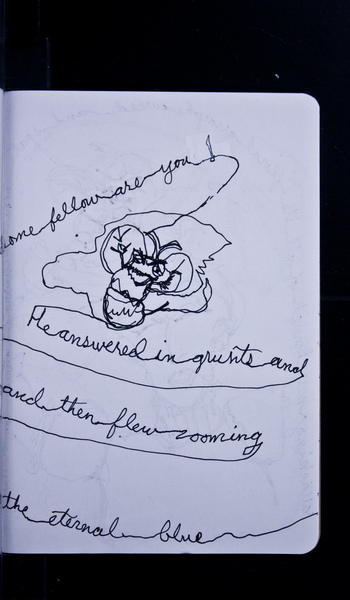 ome fellow are you!
He answered in grunts and
and then flew zooming
the eternal blue